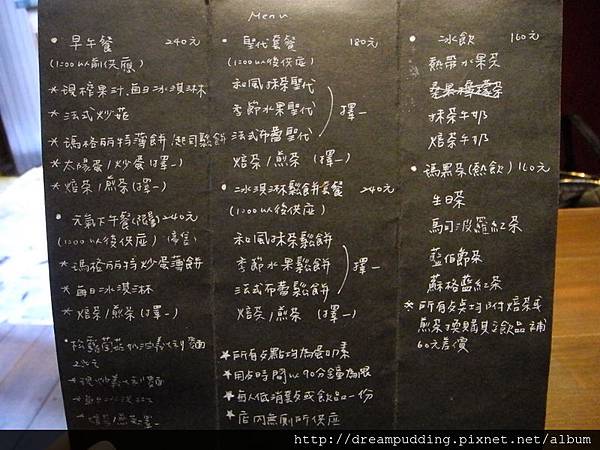 Menu
• 早午餐 240元
(1:00以前供應)
* 現榨果汁.每日冰淇淋
* 法式炒菇
* 瑪格丽特薄餅/起司鬆餅
* 太陽蛋/炒蛋(擇一)
* 焙茶/煎茶(擇一)
• 元氣下午餐(限量)240元
(1:00以後供應)
* 瑪格丽特炒蛋薄餅
* 每日冰淇淋
* 焙茶/煎茶(擇一)
• 聖代套餐 180元
(1:00以後供應)
和風抹茶聖代
季節水果聖代
法式布蕾聖代
擇一
焙茶/煎茶 (擇一)
• 冰淇淋鬆餅套餐 240元
(1:00以後供应)
和風抹茶鬆餅
季節水果鬆餅
法式布蕾鬆餅
擇一
焙茶/煎茶 (擇一)
★所有点點均為蛋奶素
★用点時間以90分鐘為限
★每人低消点或飲品一份
★店內無廁所供應
• 冰飲 160元
熱帶水果茶
抹茶牛奶
焙茶牛奶
• 瑪黑茶(熱飲)160元
生日茶
馬可波羅紅茶
藍伯爵茶
蘇格藍紅茶
* 所有点均附焙茶或
煎茶.換購其它飲品補
60元差價
http://dreampudding.pixnet.net/album